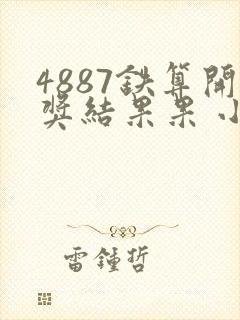 4887鉄算開
奖結果果小
雷鍾哲